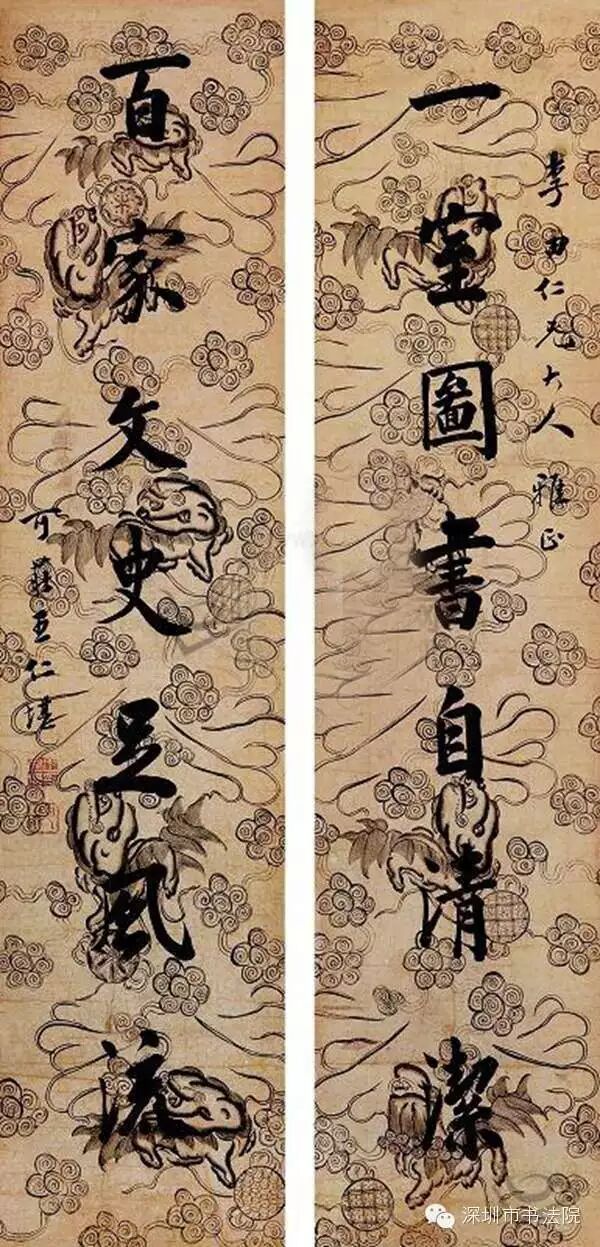 田仁兄大人雅正
一室圖書自清潔
百家文史足風流
可莊王仁堪
深圳市书法院